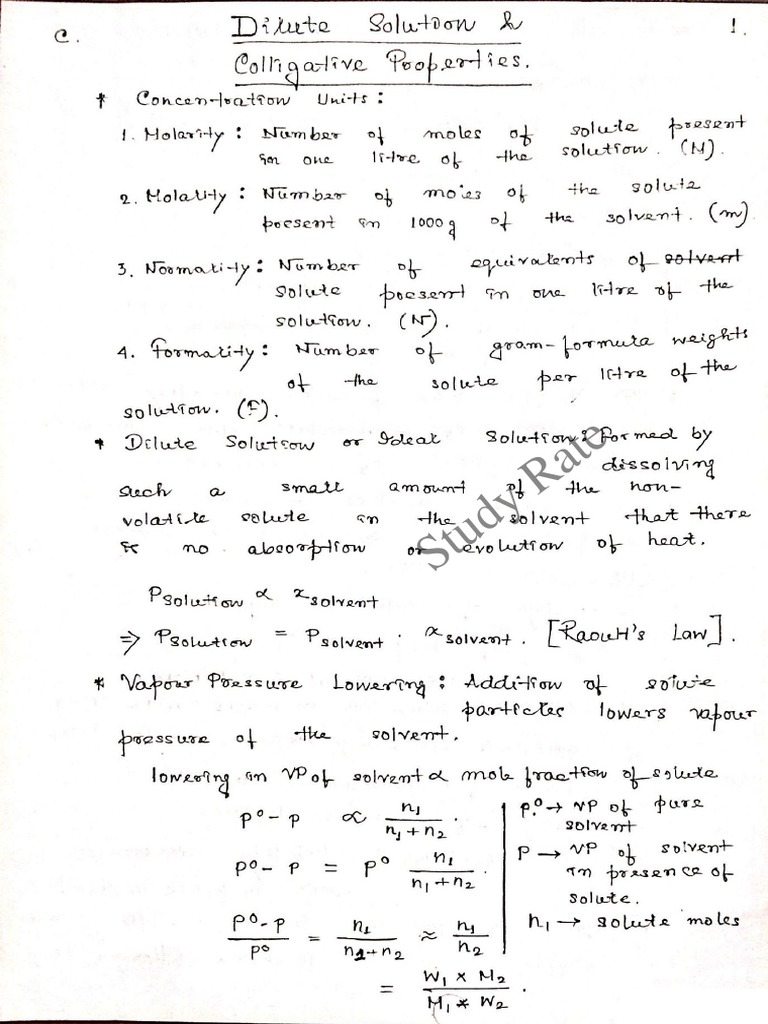 C.
Dilute Solution &
1.
Colligative Properties.
* Concentration Units:
1. Molarity: Number of moles of solute present
in one litre of the solution. (M).
2. Molality: Number of moles of the solute
present in 1000 g of the solvent. (m)
3. Normality: Number of equivalents of solvent
solute present in one litre of the
solution. (N).
4. Formality: Number of gram-formula weights
of the solute per litre of the
solution. (F).
* Dilute Solution or Ideal Solution: Formed by
dissolving
such a small amount of the non-
volatile solute in the solvent that there
is no absorption or evolution of heat.
Study Rate
Psolution ∝ xsolvent
⇒ Psolution = Psolvent . xsolvent. [Raoult's Law].
* Vapour Pressure Lowering: Addition of solute
particles lowers vapour
pressure of the solvent.
lowering in VP of solvent ∝ mole fraction of solute
P⁰ - P ∝ n₁ / (n₁ + n₂) .
P⁰ - P = P⁰ n₁ / (n₁ + n₂) .
(P⁰ - P) / P⁰ = n₁ / (n₁ + n₂) ≈ n₁ / n₂
= (W₁ × M₂) / (M₁ × W₂) .
P⁰ → VP of pure
solvent
P → VP of solvent
in presence of
solute.
n₁ → solute moles